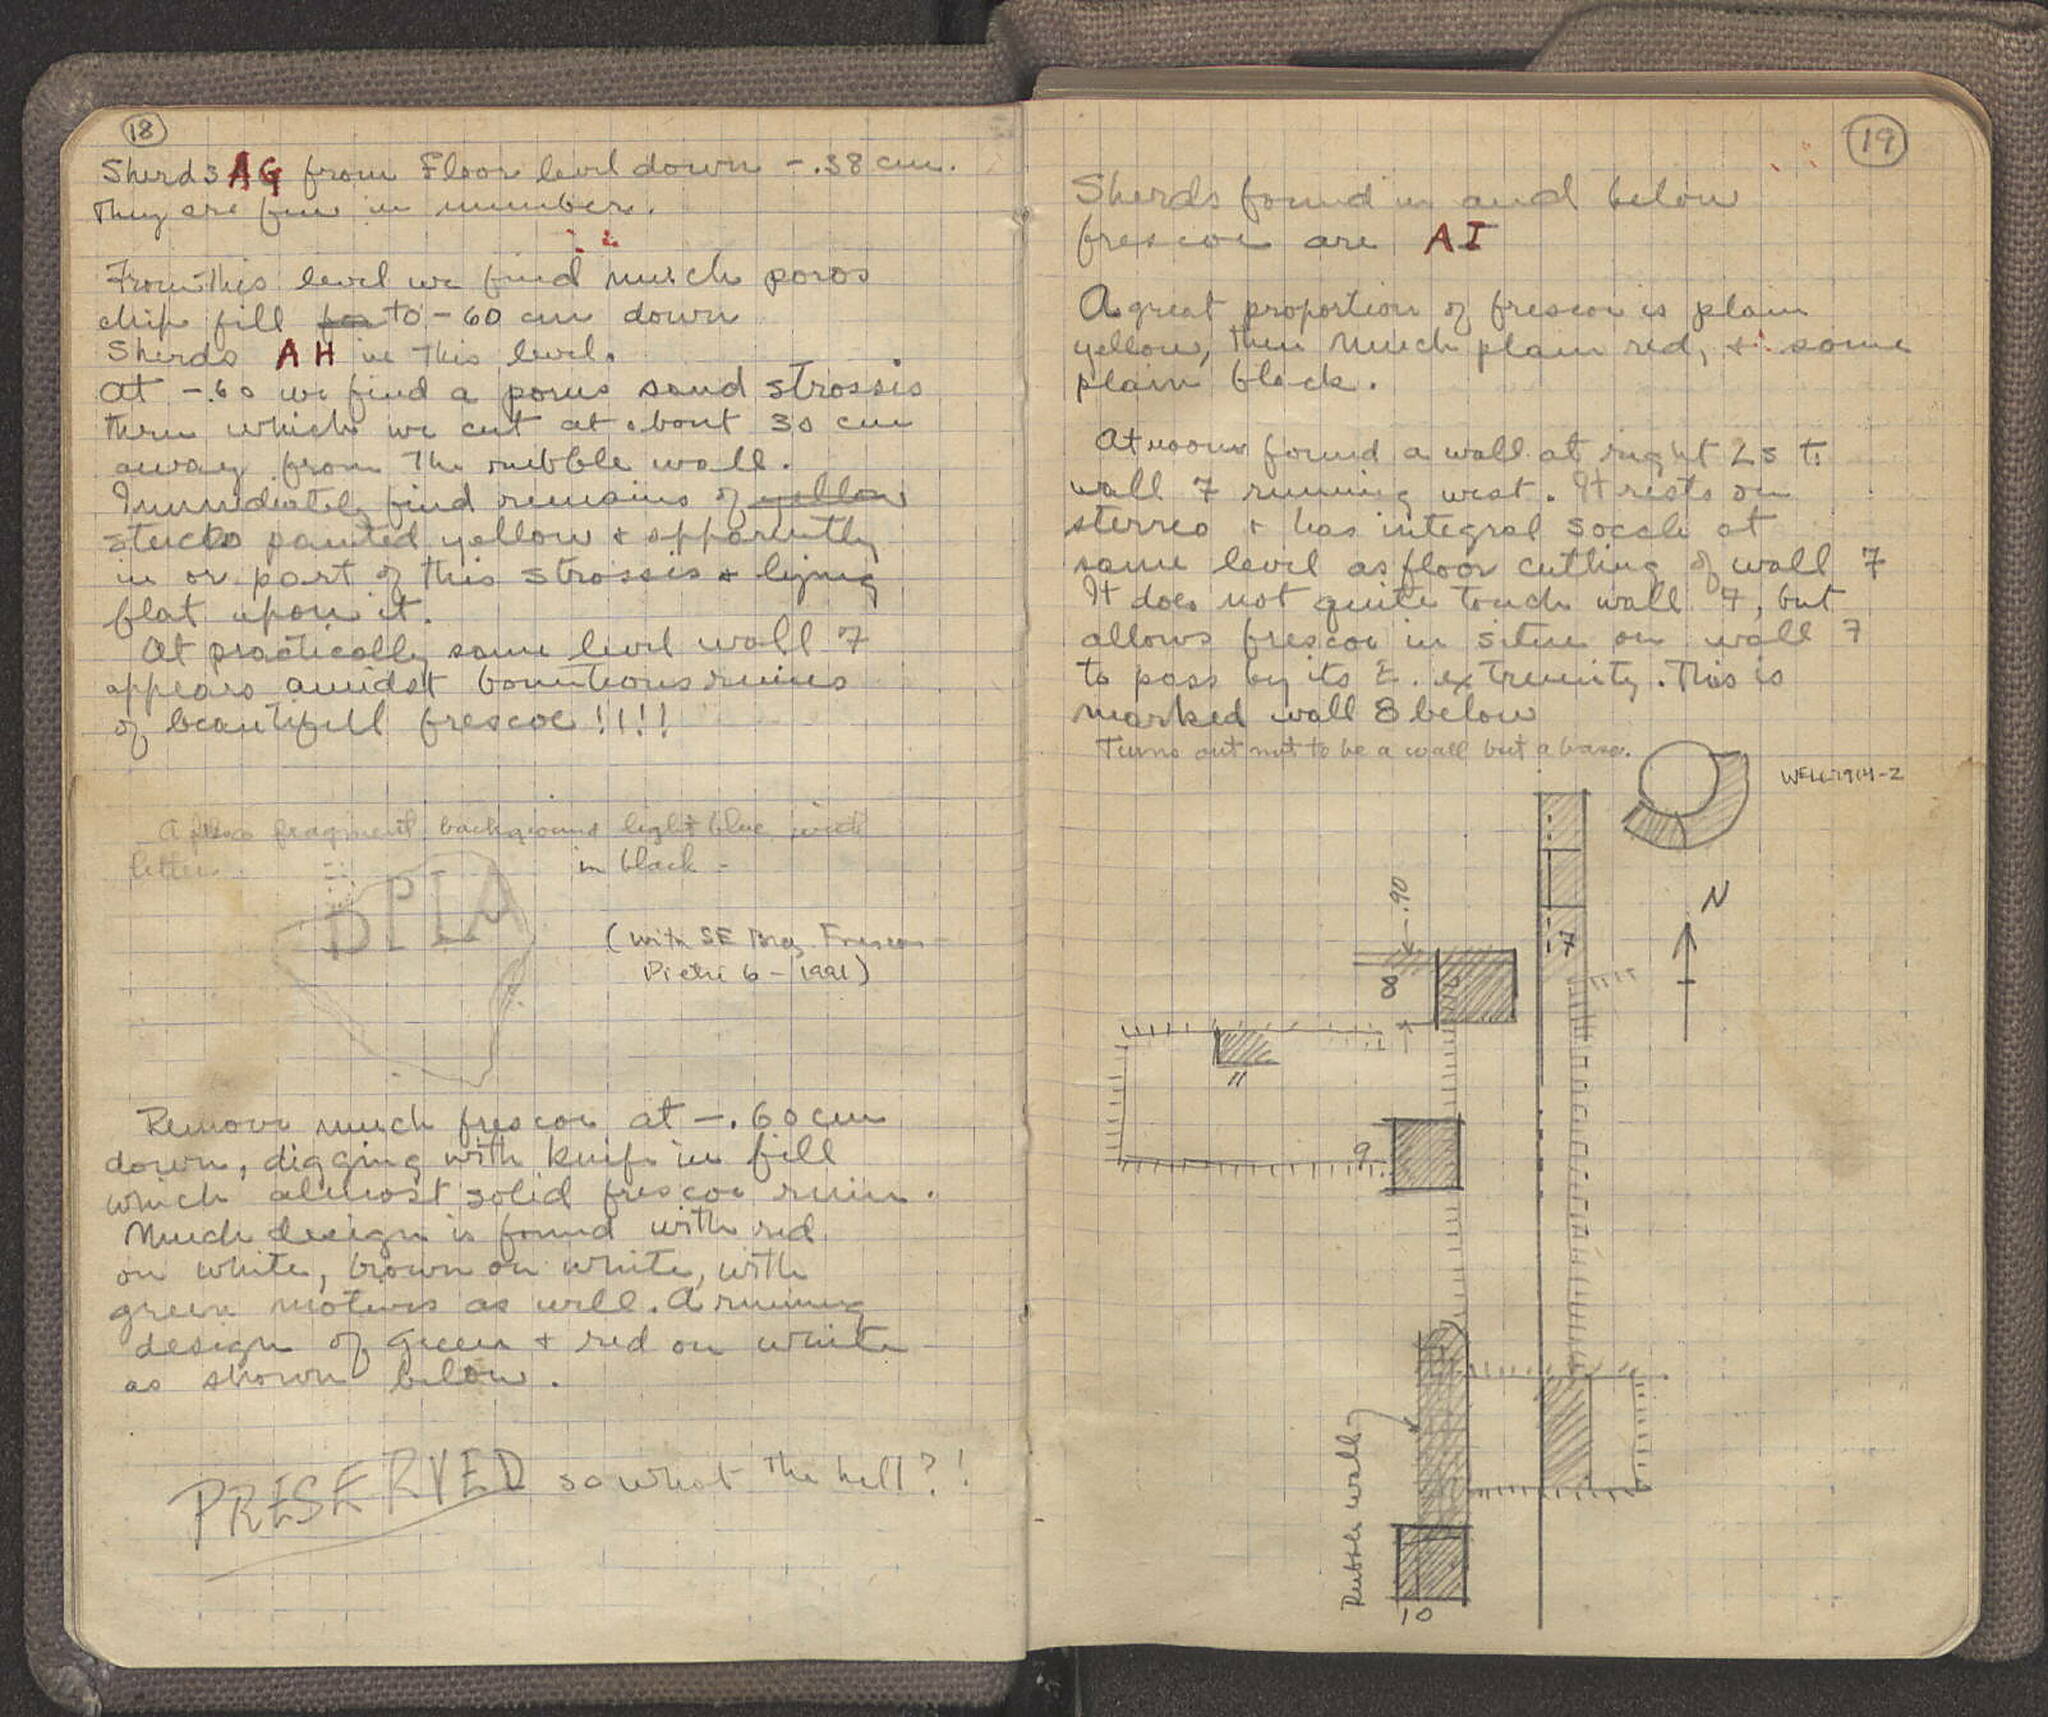 18
Sherds AG from Floor level down -.38 cm.
They are few in number.
From this level we find much poros
chip fill for to -60 cm down
Sherds AH in this level.
At -.60 we find a porus sand strossis
thru which we cut at about 30 cm
away from the rubble wall.
Immediately find remains of yellow
stucco painted yellow & apparently
in or part of this strossis & lying
flat upon it.
At practically same level wall 7
appears amidst bounteous ruins
of beautifull frescoe !!!!
A fresco fragment background light blue with
letters in black -
DPIA
(with SE Bldg. Frescoes
Pietri 6 - 1991)
Remove much frescoe at -.60 cm
down, digging with knife in fill
which almost solid frescoe ruin.
Much design is found with red
on white, brown on white, with
green motives as well. A running
design of Green & red on white
as shown below.
PRESERVED so what the hell?!
19
Sherds found in and below
frescoe are AI
A great proportion of frescoe is plain
yellow, then much plain red, & some
plain black.
At noon found a wall at right ∠s to
wall 7 running west. It rests on
sterreo & has integral socele at
same level as floor cutting of wall 7
It does not quite touch wall 7, but
allows frescoe in situ on wall 7
to pass by its E. extremity. This is
marked wall 8 below
Turns out not to be a wall but a base.
WELL 1914-2
N
.90
7
8
11
9
Rubble wall
10